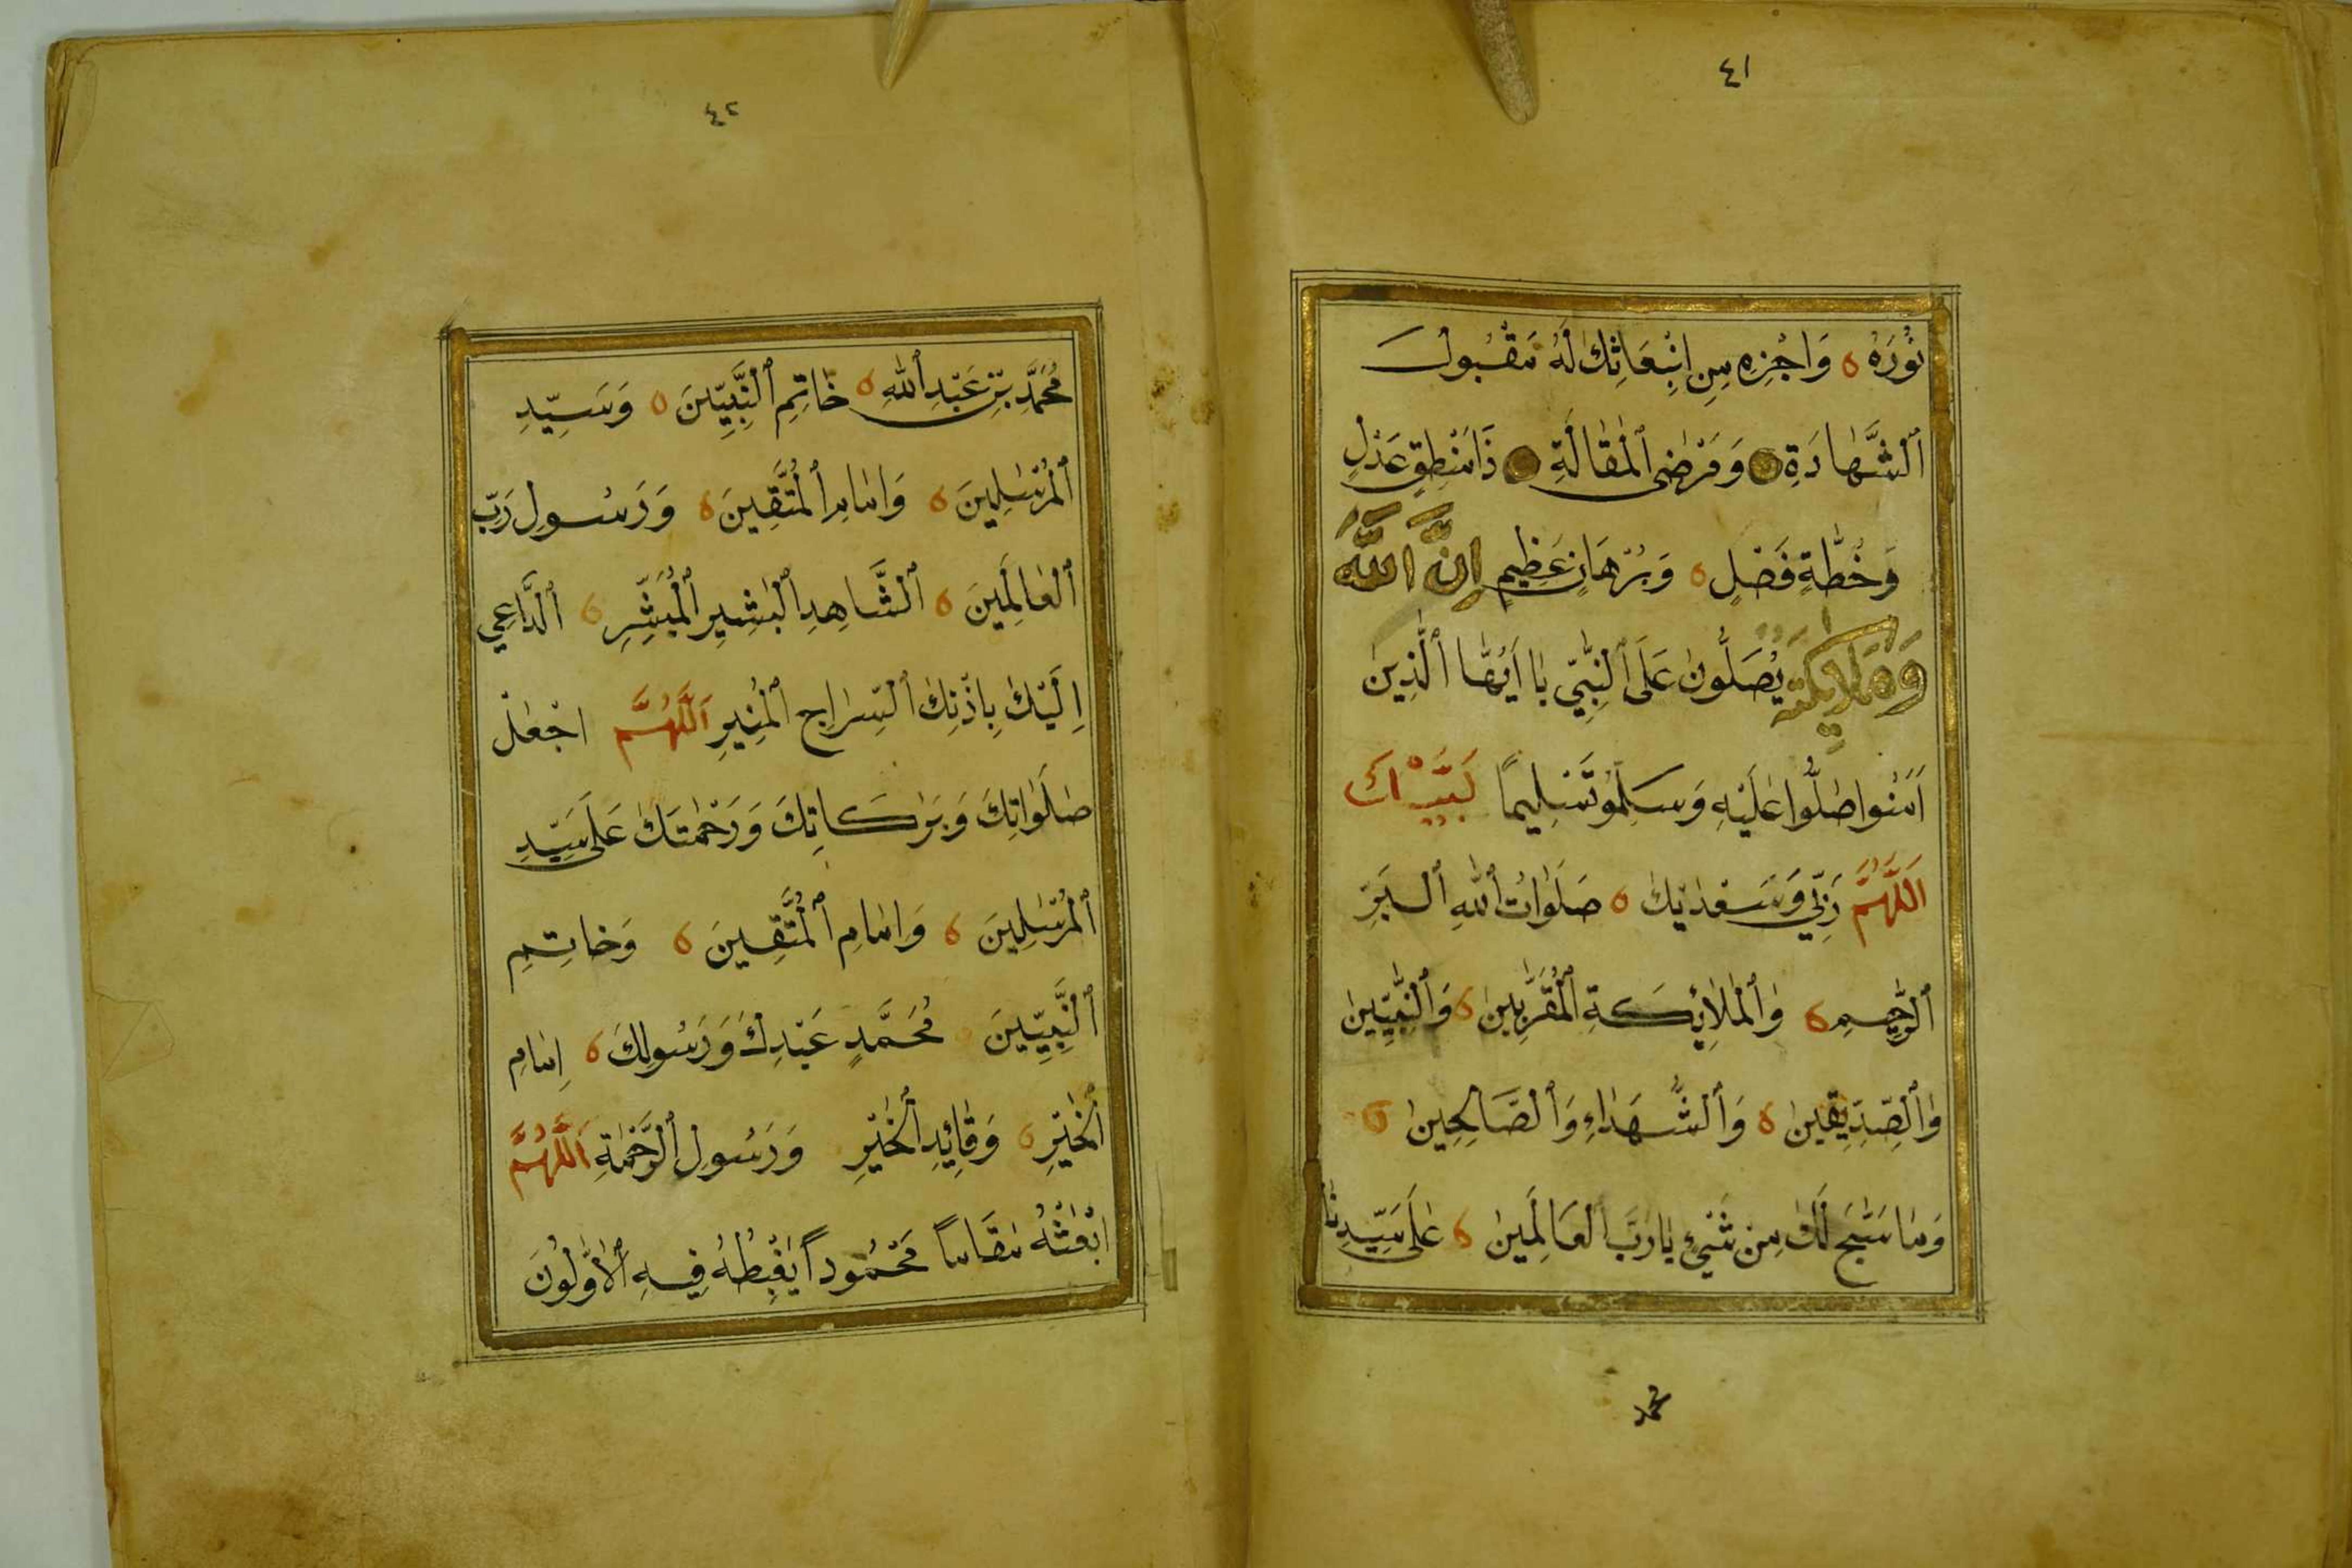 ٤١
نُورَهُ وَاجْزِهِ مِنِ ابْتِعَاثِكَ لَهُ مَقْبُولَ
ٱلشَّهَادَةِ وَمَرْضِى ٱلْمَقَالَةِ ذَا مَنْطِقٍ عَدْلٍ
وَخُطَّةِ فَصْلٍ وَبُرْهَانٍ عَظِيمٍ اِنَّ اللَّهَ
وَمَلَايِكَتَهُ يُصَلُّونَ عَلَى ٱلنَّبِيِّ يَا اَيُّهَا ٱلَّذِينَ
اٰمَنُوا صَلُّوا عَلَيْهِ وَسَلِّمُو تَسْلِيمًا لَبَّيْكَ
اَللَّهُمَّ رَبِّي وَسَعْدَيْكَ صَلَوَاتُ ٱللهِ ٱلْبَرِّ
ٱلرَّحِيمِ وَٱلْمَلَائِكَةِ ٱلْمُقَرَّبِينَ وَٱلنَّبِيِّينَ
وَٱلصِّدِّيقِينَ وَٱلشُّهَدَاءِ وَٱلصَّالِحِينَ
وَمَا سَبَّحَ لَكَ مِنْ شَيْءٍ يَا رَبَّ ٱلْعَالَمِينَ عَلَى سَيِّدِنَا
محمد
٤٢
مُحَمَّدِ بْنِ عَبْدِ ٱللهِ خَاتِمِ ٱلنَّبِيِّينَ وَسَيِّدِ
ٱلْمُرْسَلِينَ وَاِمَامِ ٱلْمُتَّقِينَ وَرَسُولِ رَبِّ
ٱلْعَالَمِينَ ٱلشَّاهِدِ ٱلْبَشِيرِ ٱلْمُبَشِّرِ ٱلدَّاعِي
اِلَيْكَ بِاِذْنِكَ ٱلسِّرَاجِ ٱلْمُنِيرِ اَللَّهُمَّ اجْعَلْ
صَلَوَاتِكَ وَبَرَكَاتِكَ وَرَحْمَتَكَ عَلَى سَيِّدِ
ٱلْمُرْسَلِينَ وَاِمَامِ ٱلْمُتَّقِينَ وَخَاتِمِ
ٱلنَّبِيِّينَ مُحَمَّدٍ عَبْدِكَ وَرَسُولِكَ اِمَامِ
ٱلْخَيْرِ وَقَائِدِ ٱلْخَيْرِ وَرَسُولِ ٱلرَّحْمَةِ اَللَّهُمَّ
ابْعَثْهُ مَقَامًا مَحْمُودًا يَغْبِطُهُ فِيهِ ٱلْاَوَّلُونَ